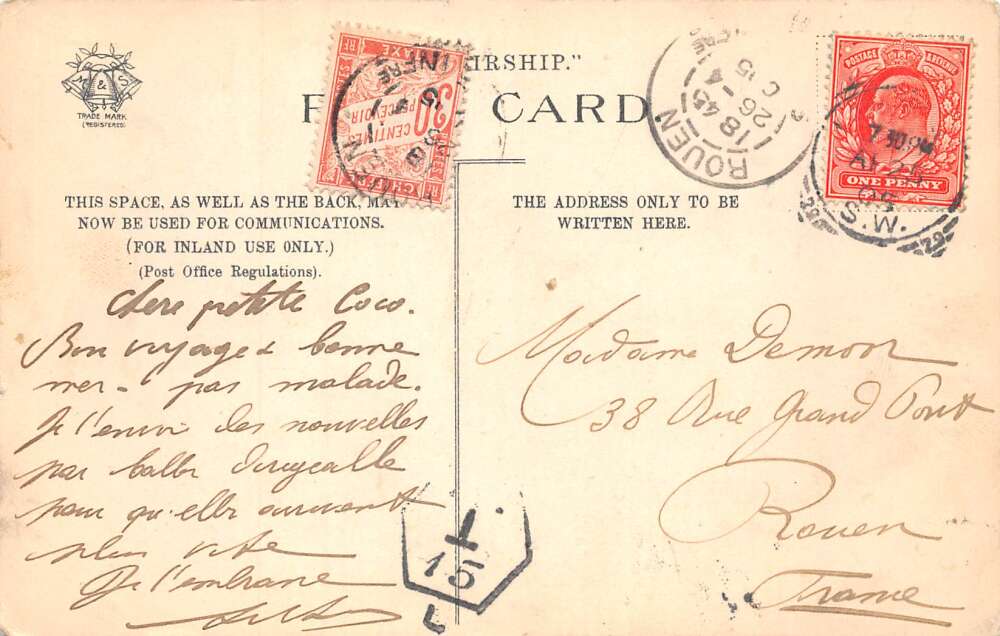 IRSHIP."
CARD.
M & S
TRADE MARK
(REGISTERED)
THIS SPACE, AS WELL AS THE BACK, MAY
NOW BE USED FOR COMMUNICATIONS.
(FOR INLAND USE ONLY.)
(Post Office Regulations).
THE ADDRESS ONLY TO BE
WRITTEN HERE.
TAXE
RF
30
CENTIMES
PERCEVOIR
ROUEN
1845
26
POSTAGE
ONE PENNY
7.30 PM
AP 25
09
S.W.
Chere petite Coco.
Bon voyage & bonne
mer - pas malade.
Je t'envoi des nouvelles
par ballon dirigeable
pour qu'elles arrivent
plus vite
Je t'embrasse
Madame Demoor
38 Rue Grand Pont
Rouen
France
1
15
L